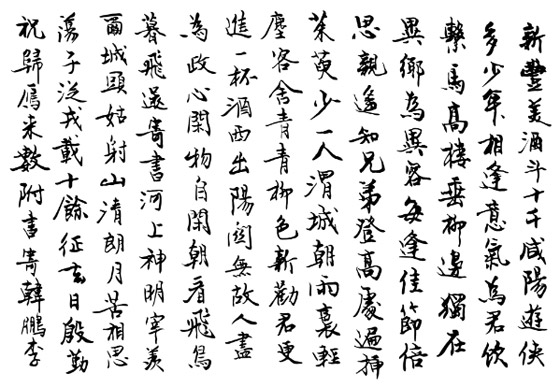 新豐美酒斗十千咸陽遊俠
多少年相逢意氣為君飲
繫馬高樓垂柳邊獨在
異鄉為異客每逢佳節倍
思親遙知兄弟登高處遍插
茱萸少一人渭城朝雨裛輕
塵客舍青青柳色新勸君更
進一杯酒西出陽關無故人盡
為政心閑物自閑朝看飛鳥
暮飛還寄書河上神明宰羨
爾城頭姑射山清朗月苦相思
蕩子從戎載十餘征去日殷勤
祝歸鴈来數附書寄韓鵬李